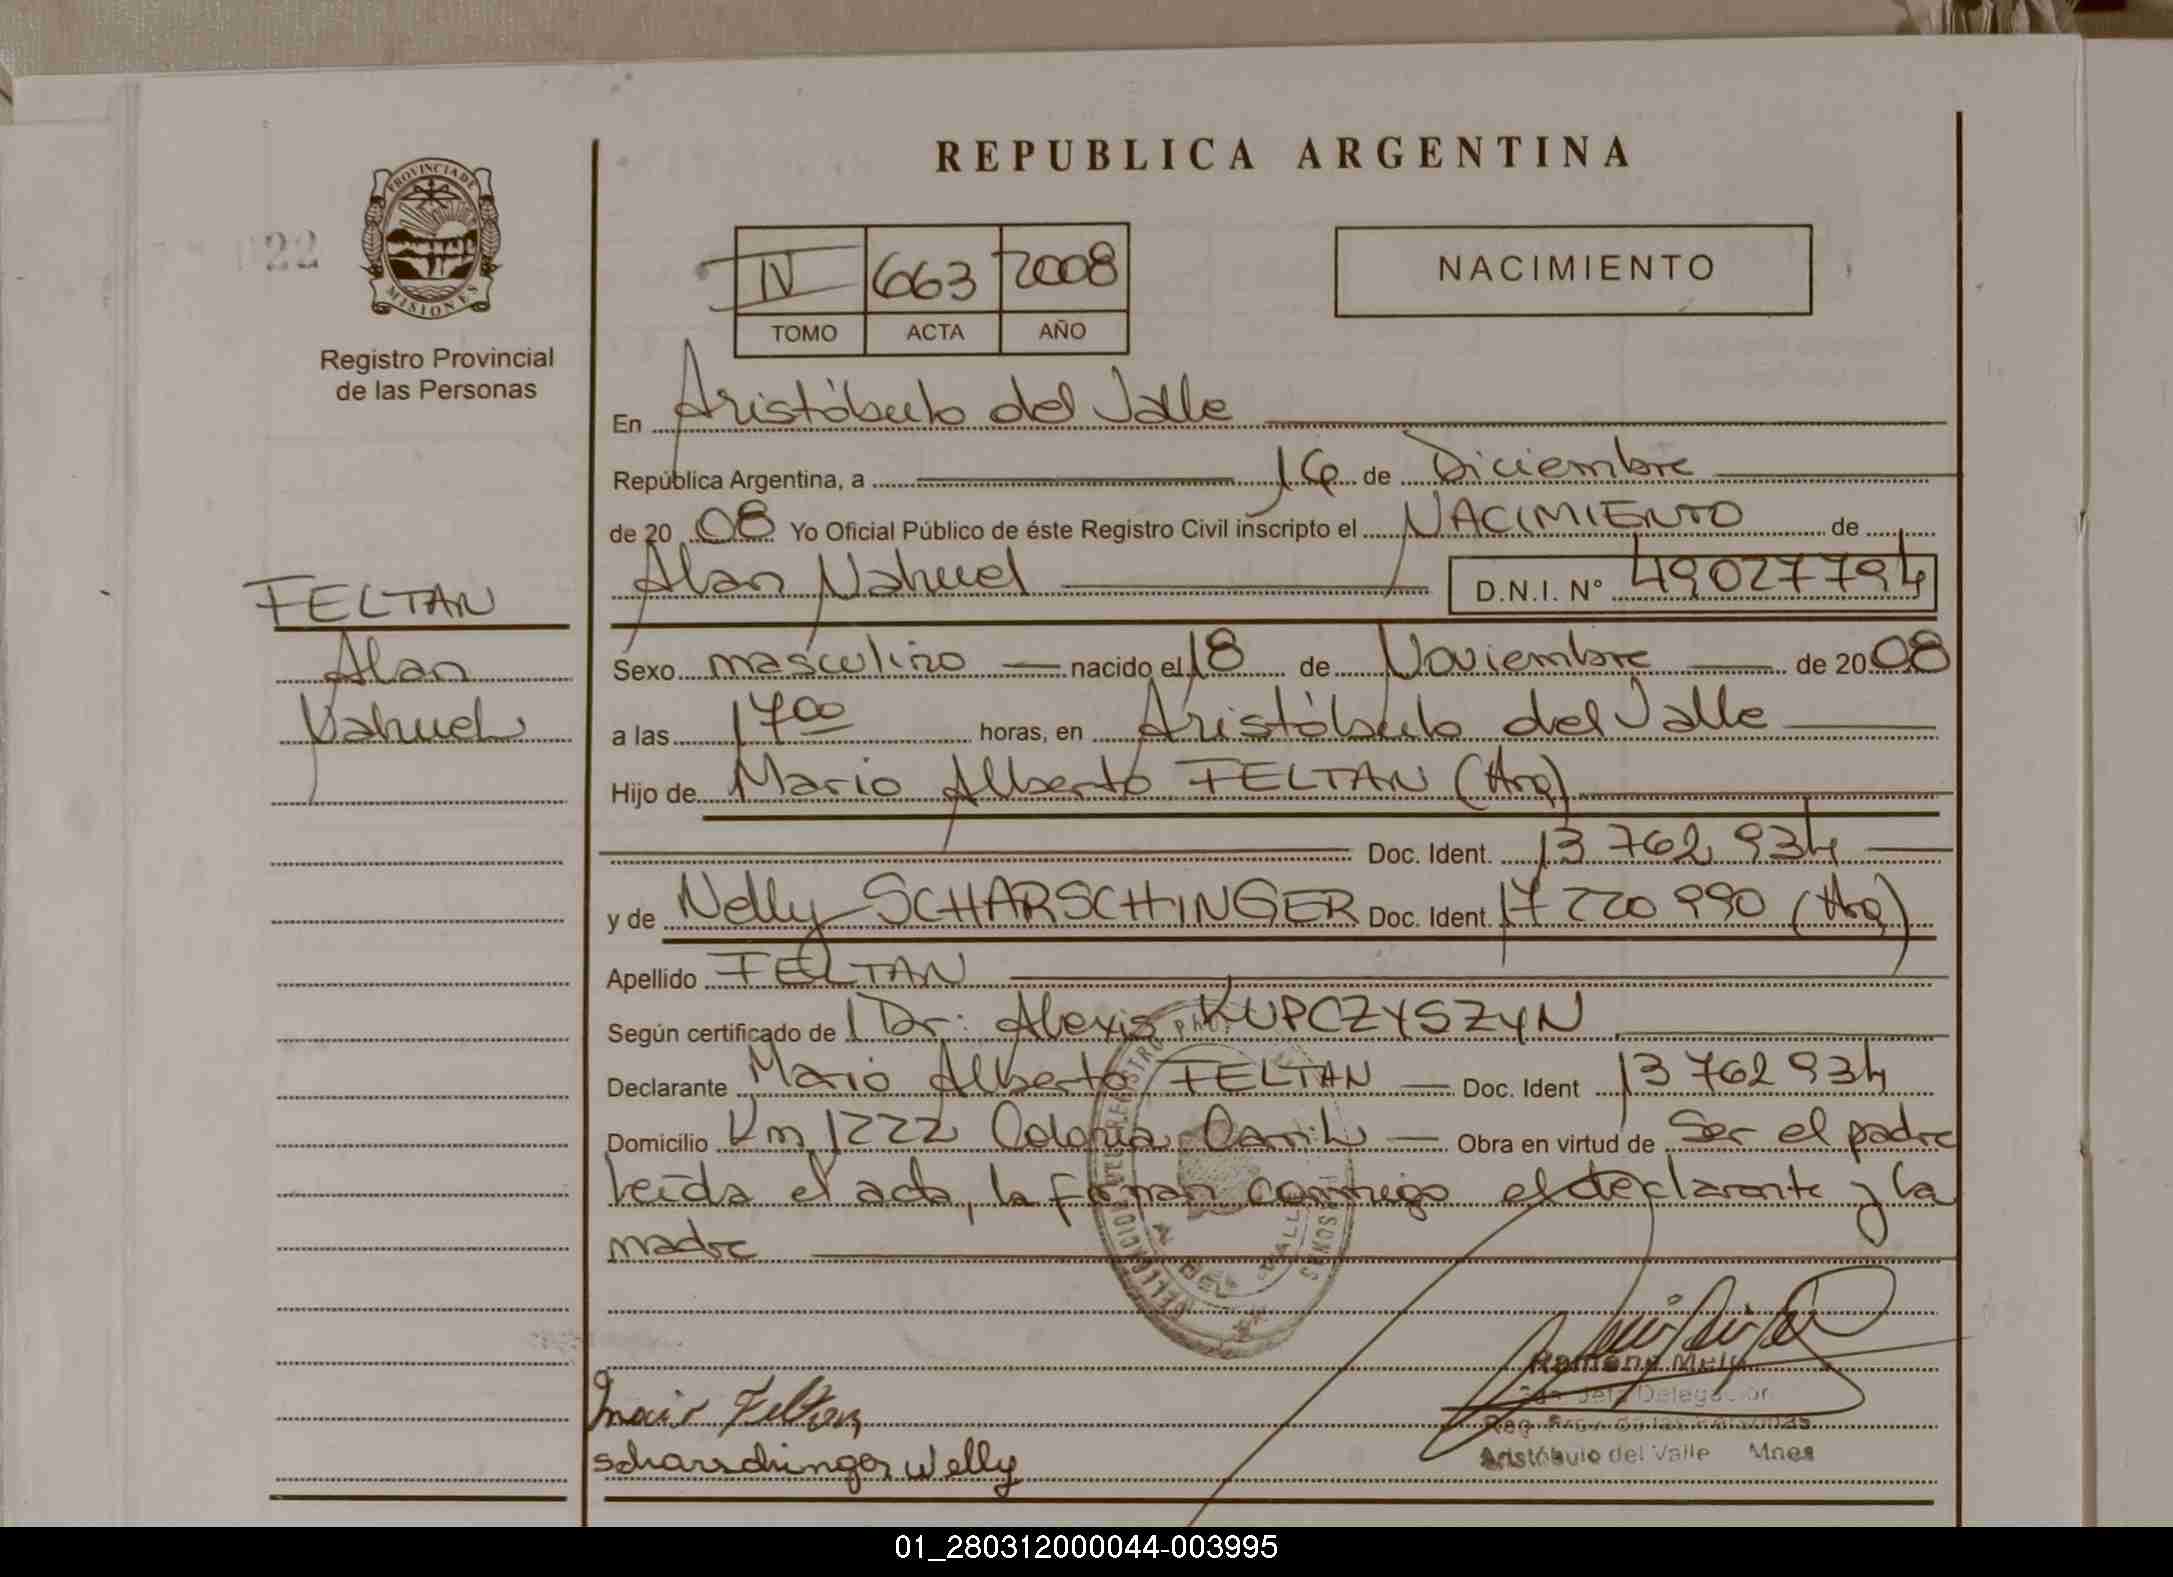 REPUBLICA ARGENTINA
022
PROVINCIA DE
MISIONES
Registro Provincial
de las Personas
IV 663 2008
TOMO ACTA AÑO
NACIMIENTO
En Aristóbulo del Valle
República Argentina, a 16 de Diciembre
de 20 08 Yo Oficial Público de éste Registro Civil inscripto el NACIMIENTO de
Alan Nahuel D.N.I. N° 49027794
FELTAN
Alan
Nahuel
Sexo masculino nacido el 18 de Noviembre de 20 08
a las 17 00 horas, en Aristóbulo del Valle
Hijo de Mario Alberto FELTAN (Arg)
Doc. Ident. 13 762 934
y de Nelly SCHARSCHINGER Doc. Ident. 17 220 990 (Arg)
Apellido FELTAN
Según certificado de Dr: Alexis KUPCZYSZYN
Declarante Mario Alberto FELTAN Doc. Ident 13 762 934
Domicilio Km 1222 Colonia Obra en virtud de Ser el padre
Leída el acta, la firman conmigo el declarante y la
madre
DEL VALLE
Mario Feltan
Scharschinger Nelly
Ramona
Jefa Delegación
Reg. Prov. de las Personas
Aristóbulo del Valle Mnes
01_280312000044-003995